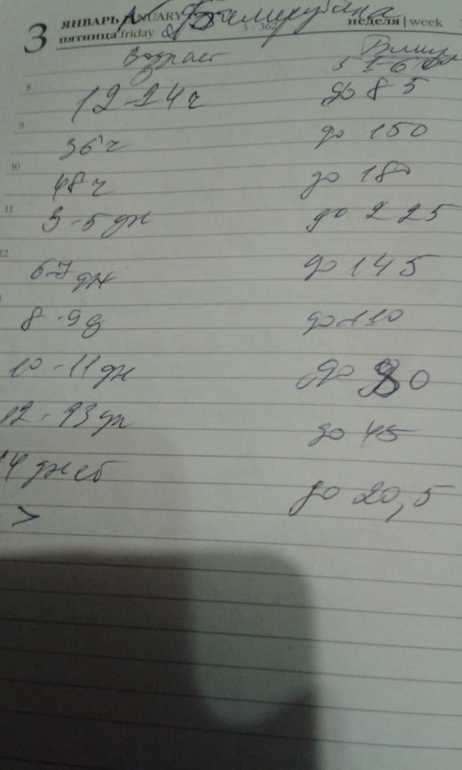 3 ЯНВАРЬ JANUARY
пятница friday
неделя | week
N Билирубина
Возраст
8
12-24 ч до 85
9
36 ч до 150
10
48 ч до 180
11
3-5 дн до 225
12
6-7 дн до 145
8-9 д до 110
10-11 дн до 80
12-13 дн до 45
14 дней
> до 20,5